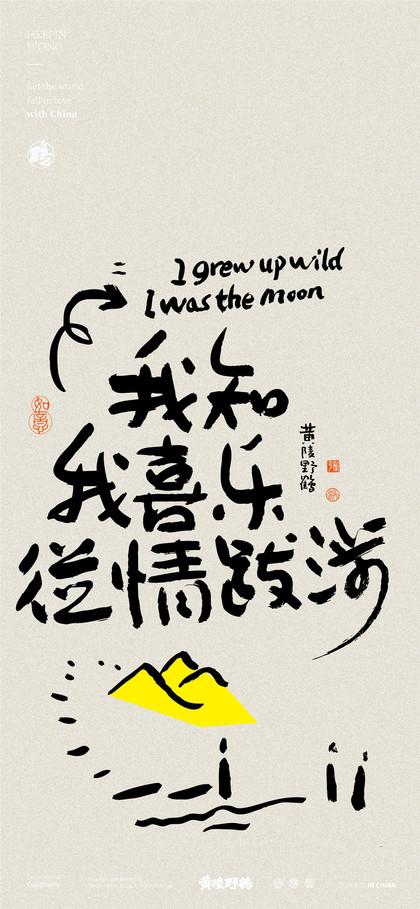 HEEPIN
WONG
Let the world
fall in love
with China
I grew up wild
I was the moon
我知
我喜乐
從情跋涉
如意
黄陵野鹤
黄陵野鹤
IN CHINA